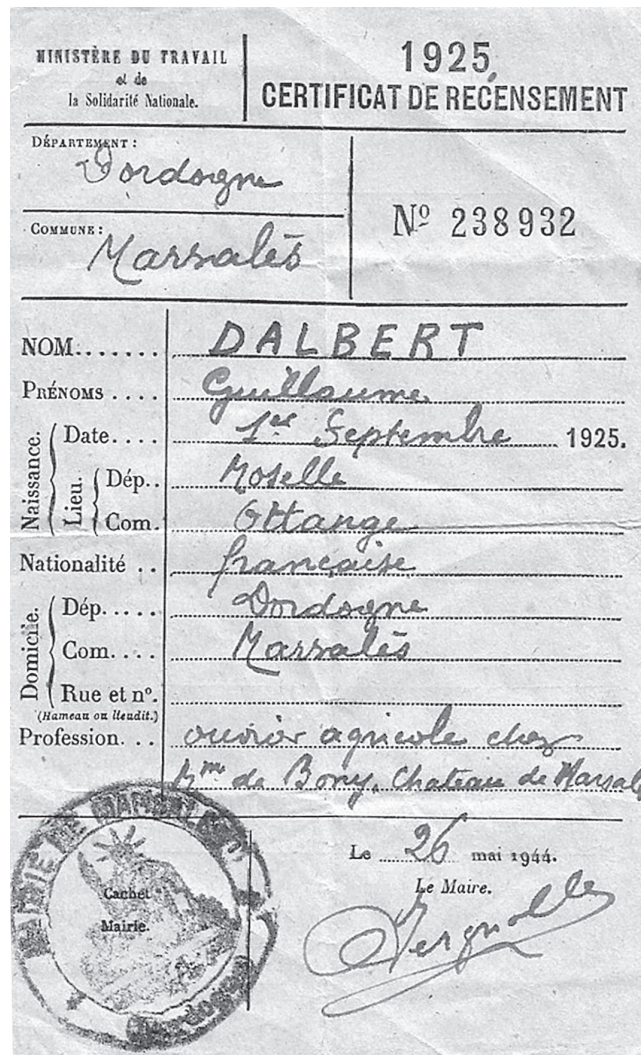 MINISTÈRE DU TRAVAIL
et de
la Solidarité Nationale.
1925
CERTIFICAT DE RECENSEMENT
DÉPARTEMENT :
Dordogne
COMMUNE :
Marsalès
Nº 238932
NOM....... DALBERT
PRÉNOMS .... Guillaume
Naissance.
Date.... 1er Septembre 1925.
Lieu.
Dép.. Moselle
Com. Ottange
Nationalité .. française
Domicile.
Dép..... Dordogne
Com.... Marsalès
Rue et nº.
(Hameau ou lieudit.)
Profession... ouvrier agricole chez
Mme de Bony, Chateau de Marsal
Le 26 mai 1944.
Le Maire.
Vergnolle
MAIRIE DE MARSALÈS
Cachet
Mairie.
Dordogne